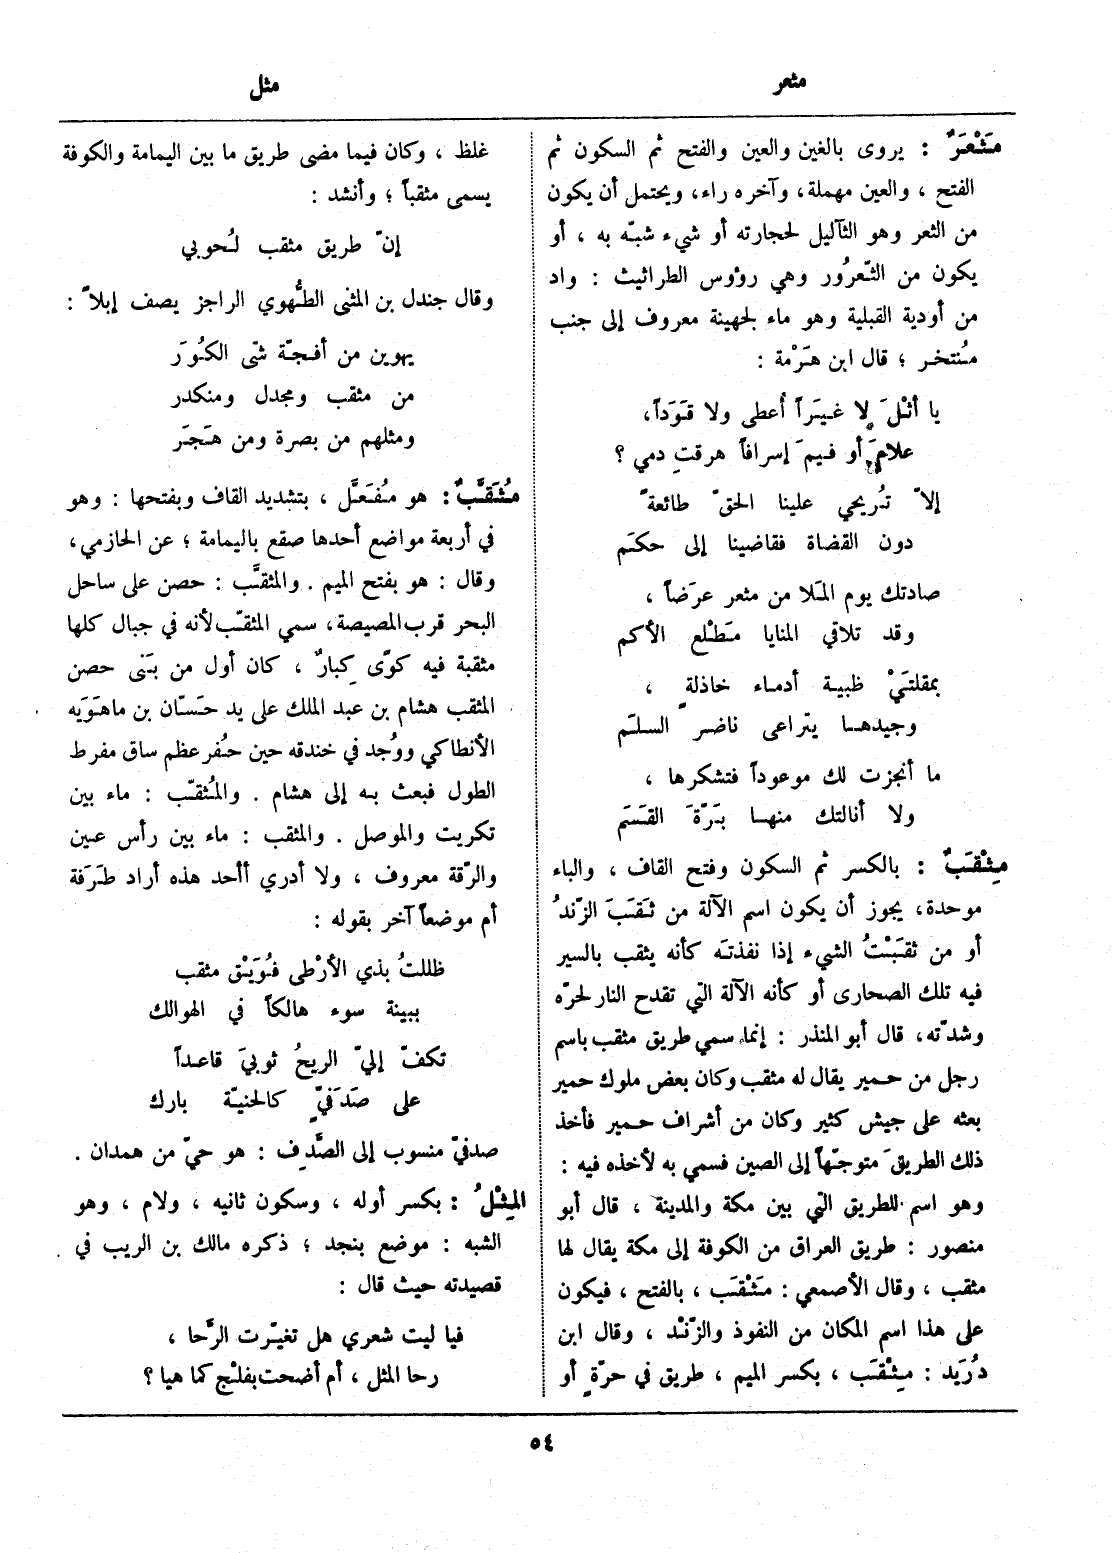 مثعر
مثل
مَثْعَرٌ : يروى بالغين والعين والفتح ثم السكون ثم
الفتح ، والعين مهملة، وآخره راء، ويحتمل أن يكون
من الثعر وهو الثآليل لحجارته أو شيء شبّه به ، أو
يكون من الثّعرُور وهي رؤوس الطراثيث : واد
من أودية القبلية وهو ماء لجهينة معروف إلى جنب
مُنتخر ؛ قال ابن هَرْمة :
يا أثْلَ لا غِيَراً أُعطى ولا قَوَداً،
علامَ أو فيمَ إسرافاً هرقتِ دمي ؟
إلاّ تُريحي علينا الحقّ طائعةً
دون القضاة فقاضينا إلى حكَم
صادتك يوم المَلا من مثعر عرَضاً ،
وقد تلاقي المنايا مَطْلع الأكم
بمقلتَيْ ظبية أدماء خاذلةٍ ،
وجيدهـا يتراعى ناضر السلَم
ما أنجزت لك موعوداً فتشكرها ،
ولا أنالتك منهـا بَرّةَ القسَم
مِثْقَبٌ : بالكسر ثم السكون وفتح القاف ، والباء
موحدة، يجوز أن يكون اسم الآلة من ثَقَبَ الزّندُ
أو من ثقَبْتُ الشيء إذا نفذتَه كأنه يثقب بالسير
فيه تلك الصحارى أو كأنه الآلة التي تقدح النار لحرّه
وشدّته، قال أبو المنذر : إنما سمي طريق مثقب باسم
رجل من حمير يقال له مثقب وكان بعض ملوك حمير
بعثه على جيش كثير وكان من أشراف حمير فأخذ
ذلك الطريقَ متوجّهاً إلى الصين فسمي به لأخذه فيه :
وهو اسم للطريق التي بين مكة والمدينة ، قال أبو
منصور : طريق العراق من الكوفة إلى مكة يقال لها
مثقب ، وقال الأصمعي : مَثْقَب ، بالفتح ، فيكون
على هذا اسم المكان من النفوذ والزّنْد ، وقال ابن
دُرَيد : مِثْقَب ، بكسر الميم ، طريق في حرّةٍ أو
غلظ ، وكان فيما مضى طريق ما بين اليمامة والكوفة
يسمى مثقباً ؛ وأنشد :
إنّ طريق مثقب لحُوبي
وقال جندل بن المثنى الطُّهوي الراجز يصف إبلاً :
يهوين من أفجّة شتى الكُوَر
من مثقب ومجدل ومنكدر
ومثلهم من بصرة ومن هَجَر
مُثَقَّبٌ : هو مُفَعَّل ، بتشديد القاف وبفتحها : وهو
في أربعة مواضع أحدها صقع باليمامة ؛ عن الحازمي،
وقال : هو بفتح الميم . والمثقَّب : حصن على ساحل
البحر قرب المصيصة، سمي المثقّب لأنه في جبال كلها
مثقبة فيه كوًى كِبارٌ ، كان أول من بَنى حصن
المثقب هشام بن عبد الملك على يد حَسّان بن ماهَوَيه
الأنطاكي ووُجد في خندقه حين حُفر عظم ساق مفرط
الطول فبعث به إلى هشام . والمُثقّب : ماء بين
تكريت والموصل . والمثقب : ماء بين رأس عين
والرّقة معروف ، ولا أدري أأحد هذه أراد طَرَفة
أم موضعاً آخر بقوله :
ظللتُ بذي الأرْطى فُوَيْق مثقب
ببينة سوء هالكاً في الهوالك
تكفّ إليّ الريحُ ثوبيَ قاعداً
على صَدَفيٍّ كالحنيّة بارك
صدفيّ منسوب إلى الصَّدِف : هو حيّ من همدان .
المِثْلُ : بكسر أوله ، وسكون ثانيه ، ولام ، وهو
الشبه : موضع بنجد ؛ ذكره مالك بن الريب في
قصيدته حيث قال :
فيا ليت شعري هل تغيّرت الرَّحا ،
رحا المثل ، أم أضحت بفلْج كما هيا ؟
٥٤